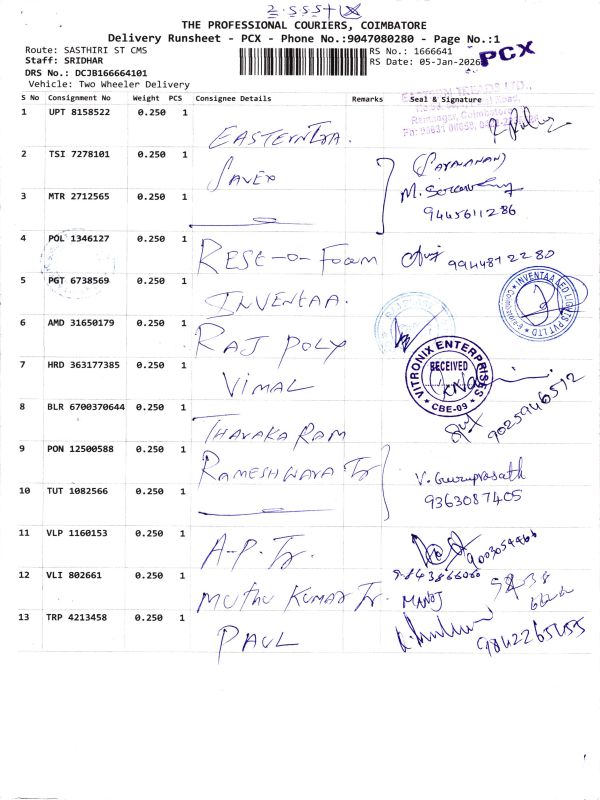 THE PROFESSIONAL COURIERS, COIMBATORE
Delivery Runsheet - PCX - Phone No.:9047080280 - Page No.:1
Route: SASTHIRI ST CMS
RS No.: 1666641
Staff: SRIDHAR
RS Date: 05-Jan-2026
PCX
DRS No.: DCJB166664101
Vehicle: Two Wheeler Delivery
S No Consignment No Weight PCS Consignee Details Remarks Seal & Signature
1 UPT 8158522 0.250 1
2 TSI 7278101 0.250 1 SAVEX
M.
9445611286
3 MTR 2712565 0.250 1
4 POL 1346127 0.250 1 REST-O-FOAM 9944812280
5 PGT 6738569 0.250 1 INVENTAA.
INVENTAA LED LIGHTS PVT LTD
6 AMD 31650179 0.250 1 RAJ POLY
7 HRD 363177385 0.250 1 VIMAL
VITRONIX ENTERPRISES
RECEIVED
CBE-09
8 BLR 6700370644 0.250 1 THAVAKARAM
9025946512
9 PON 12500588 0.250 1 RAMESHWARA Tr
V. Guruprasath
9363087405
10 TUT 1082566 0.250 1
11 VLP 1160153 0.250 1 A-P. Tr.
12 VLI 802661 0.250 1 MUTHU KUMAR Tr. MANOJ
13 TRP 4213458 0.250 1 PAUL
9842265655